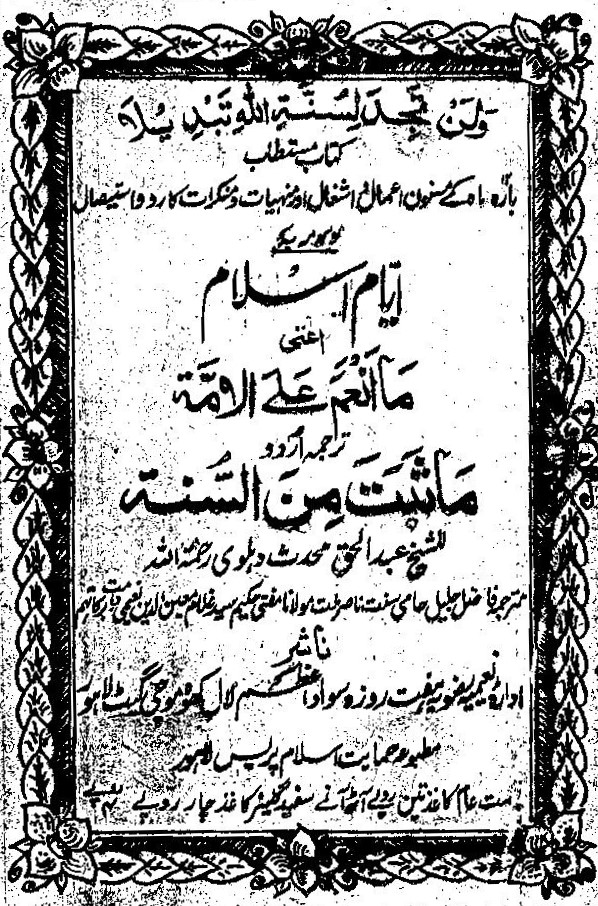 وَلَنْ تَجِدَ لِسُنَّةِ اللّٰهِ تَبْدِيْلًا
کتاب مستطاب
بارہ ماہ کے مسنون اعمال و اشغال اور منہیات و منکرات کا رد و استیصال
موسوم بہ
ایام اسلام
اعنی
مَا اَنْعَمَ عَلَی الْاُمَّة
ترجمہ اُردو
مَا ثَبَتَ مِنَ السُّنَّة
للشیخ عبد الحق محدث دہلوی رحمۃ اللہ
مترجمہ فاضل جلیل حامی سنت ناصر ملت مولانا مفتی حکیم سید غلام معین الدین نعیمی دامت برکاتہم
ناشر
ادارہ نعیمیہ رضویہ ہفت روزہ سواد اعظم لال کھوہ موچی گیٹ لاہور
مطبوعہ حمایت اسلام پریس لاہور
عام کاغذ تین روپے آٹھ آنے سفید گلیز کاغذ چار روپے